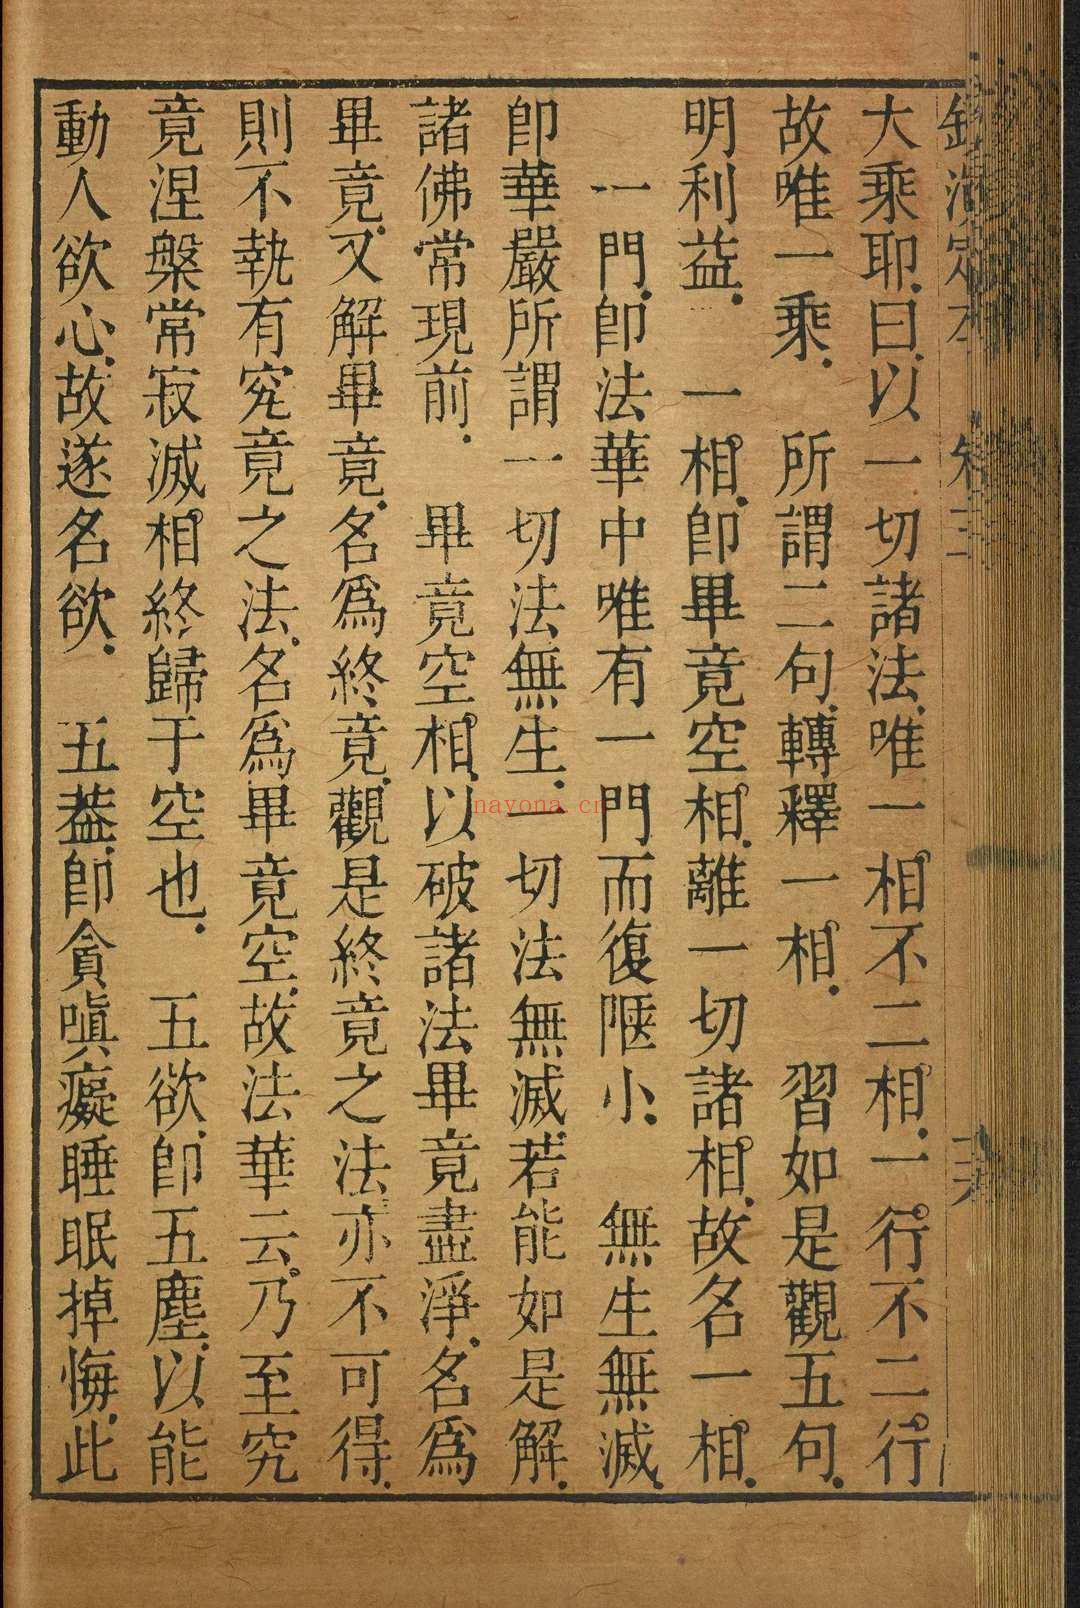 大乘耶.曰.以一切諸法.唯一相不二相.一行不二行
故唯一乘.　所謂二句.轉釋一相.　習如是觀五句.
明利益.　一相.卽畢竟空相.離一切諸相.故名一相.
一門.卽法華中唯有一門而復陿小.　無生無滅.
卽華嚴所謂一切法無生.一切法無滅.若能如是解.
諸佛常現前.　畢竟空相.以破諸法畢竟盡淨.名爲
畢竟.又解畢竟.名爲終竟.觀是終竟之法.亦不可得.
則不執有究竟之法.名爲畢竟空.故法華云.乃至究
竟涅槃常寂滅相.終歸于空也.　五欲.卽五塵.以能
動人欲心.故遂名欲.　五葢.卽貪嗔癡睡眠掉悔.此
nayona.cn